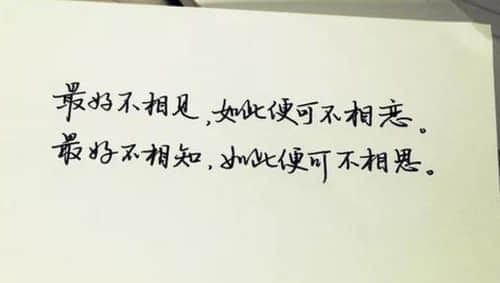 最好不相见,如此便可不相恋。
最好不相知,如此便可不相思。